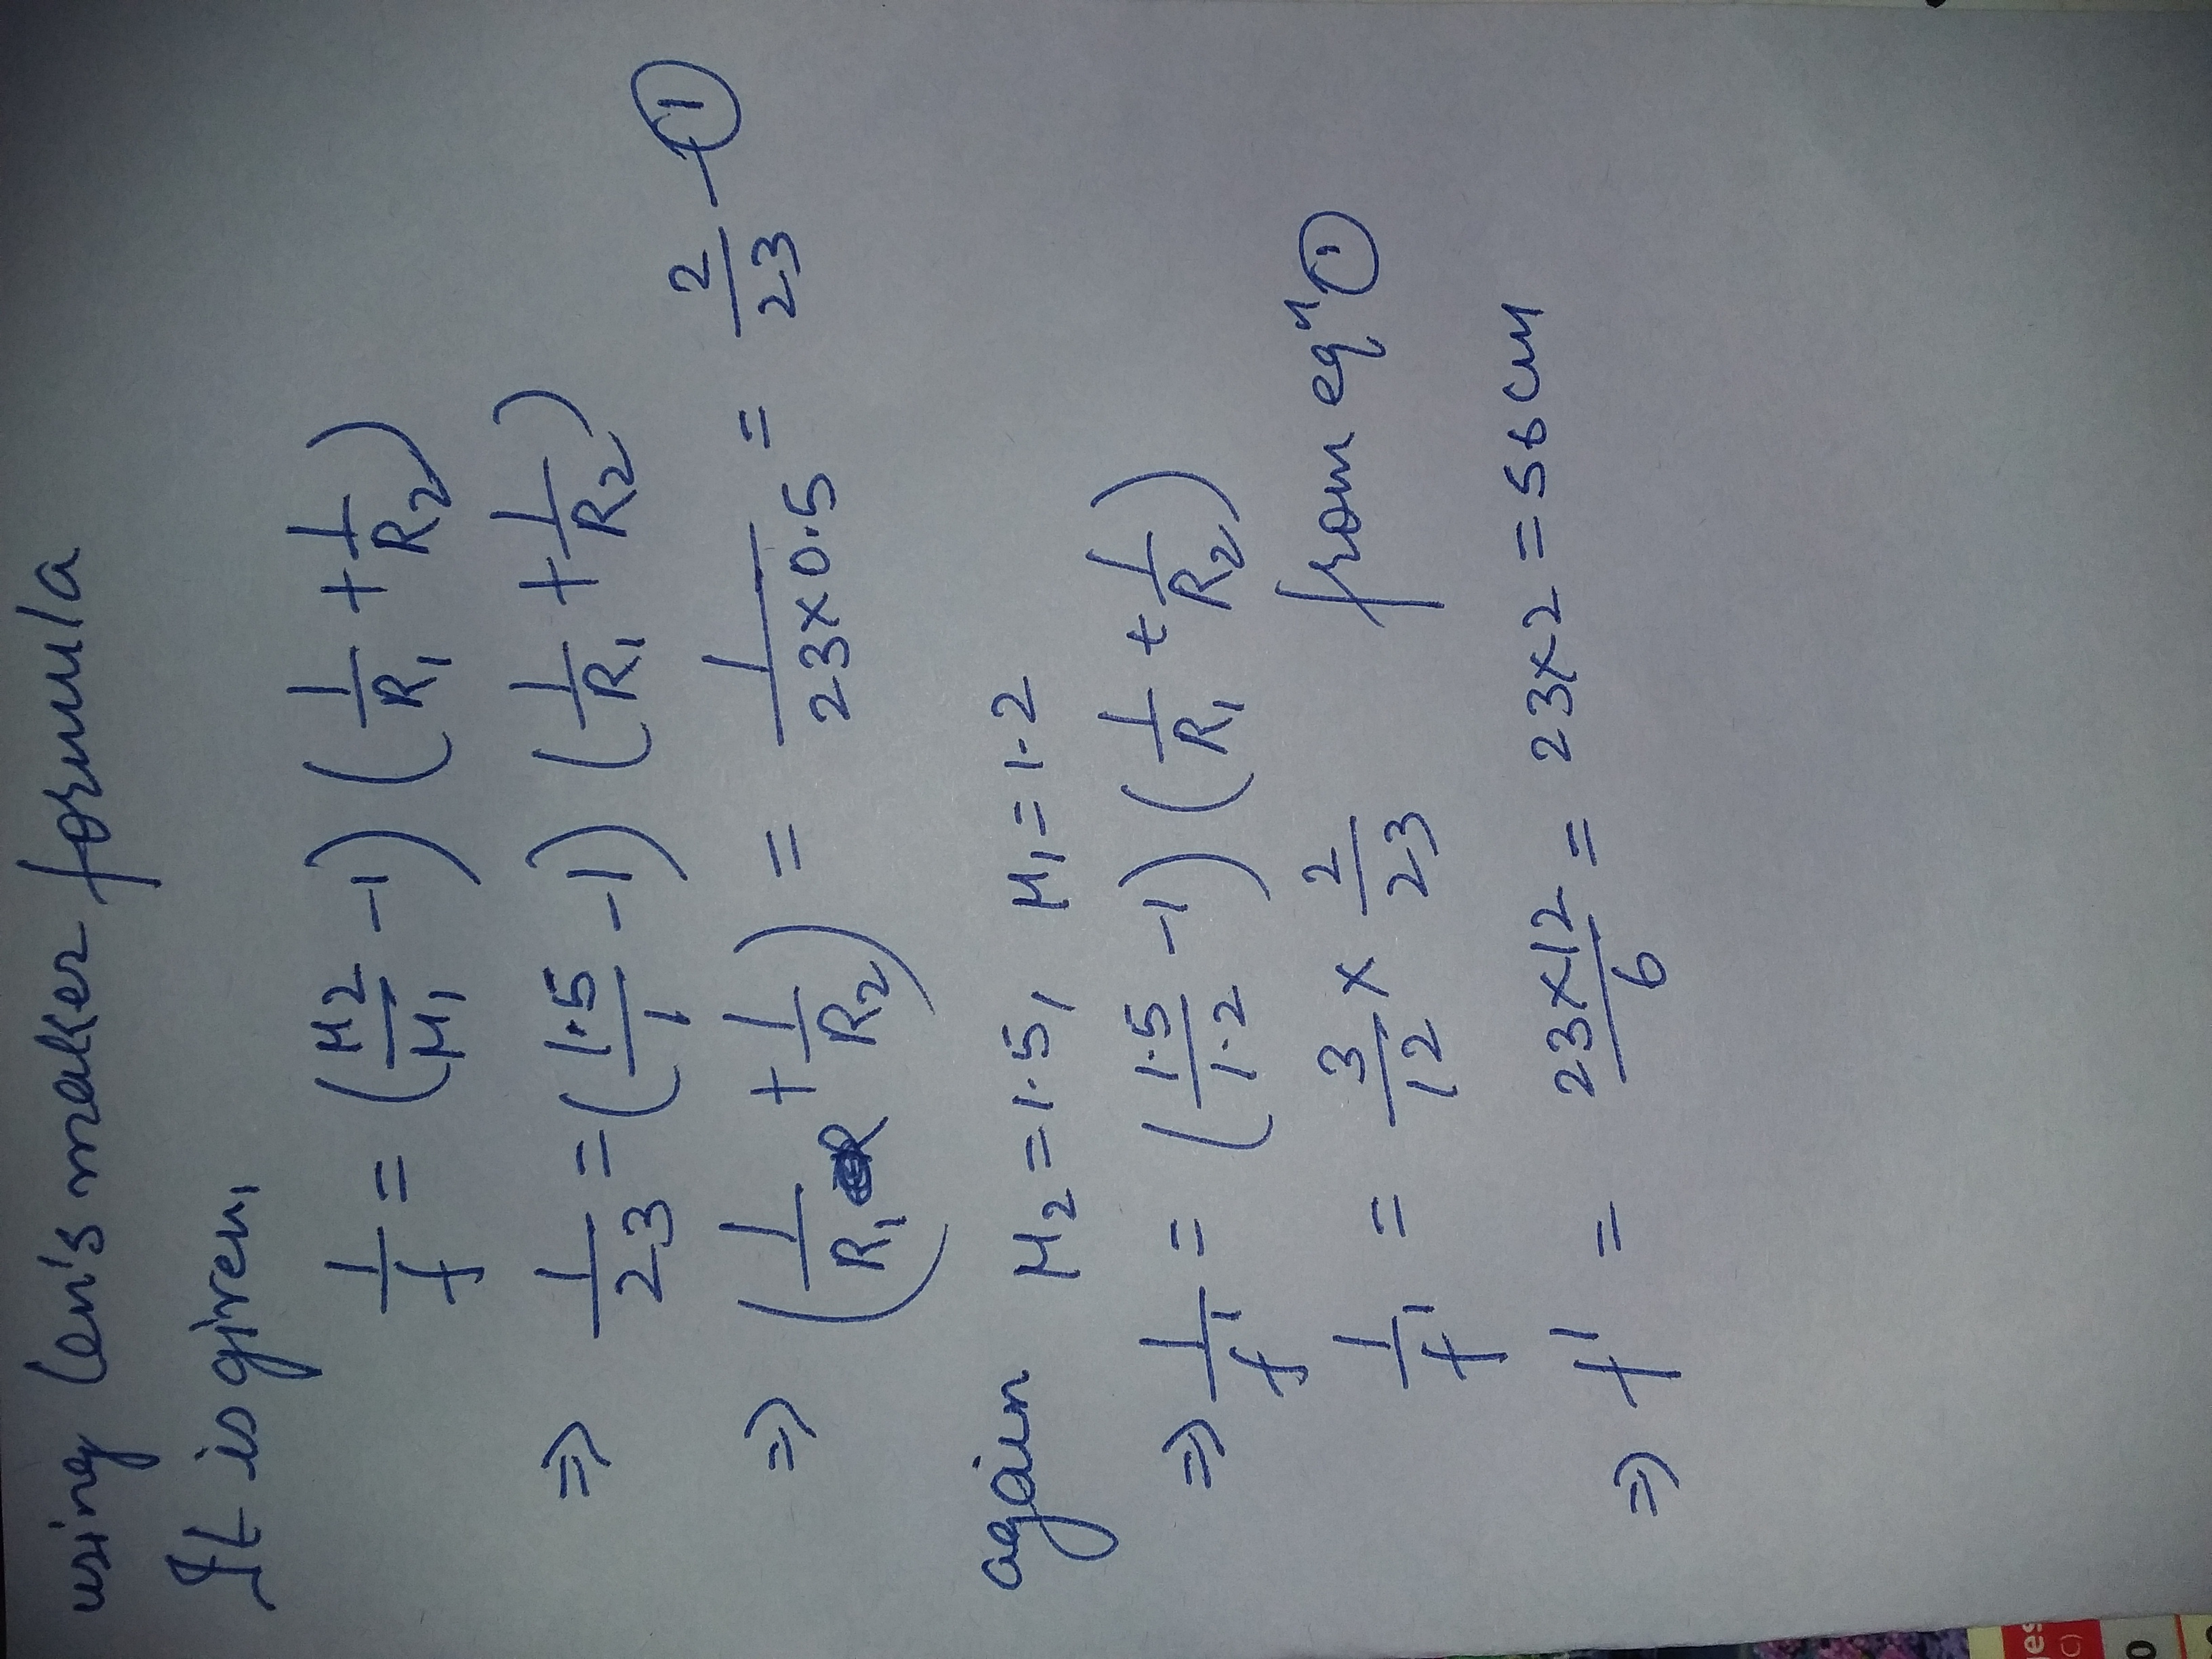 using len's maker formula
It is given,
1/f = (μ2/μ1 - 1) (1/R1 + 1/R2)
⇒ 1/23 = (1.5/1 - 1) (1/R1 + 1/R2)
⇒ (1/R1 + 1/R2) = 1/(23×0.5) = 2/23 - ①
again μ2 = 1.5, μ1 = 1.2
⇒ 1/f' = (1.5/1.2 - 1) (1/R1 + 1/R2)
1/f' = 3/12 × 2/23 from eqn ①
⇒ f' = 23×12/6 = 23×2 = 56 cm
es
C)
0